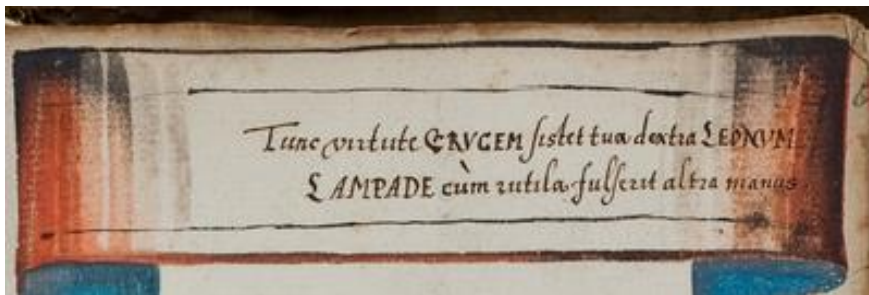 Tunc virtute CRVCEM sistet tua dextra LEONVM
LAMPADE cùm rutila fulserit altra manus.